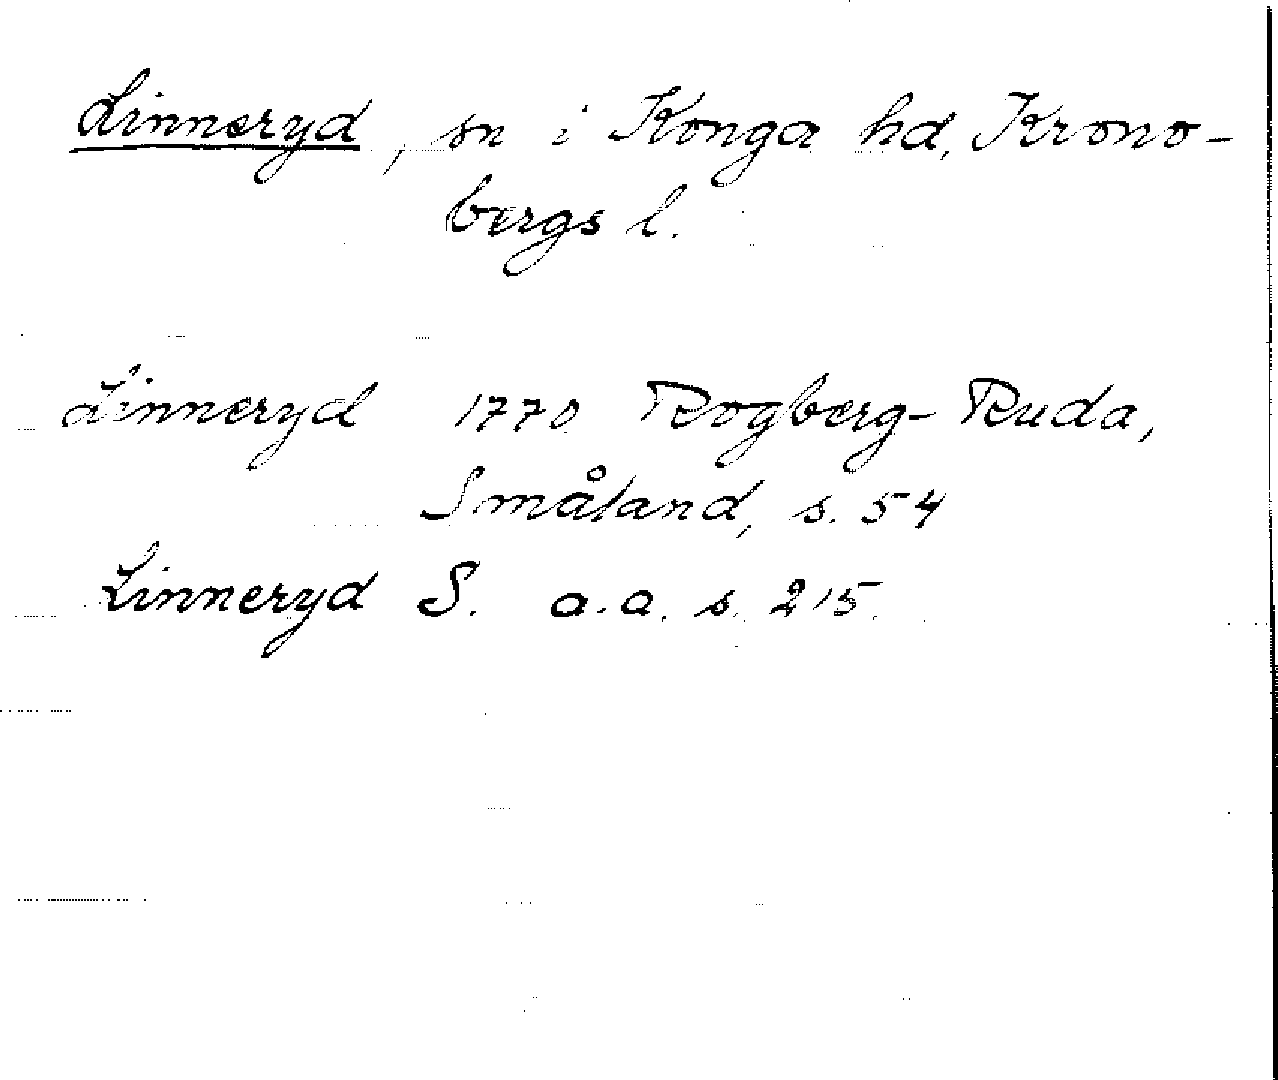 Linneryd, sn i Konga hd, Krono-
bergs l.
Linneryd 1770 Rogberg-Ruda,
Småland, s. 54
Linneryd S. a.a. s. 215.